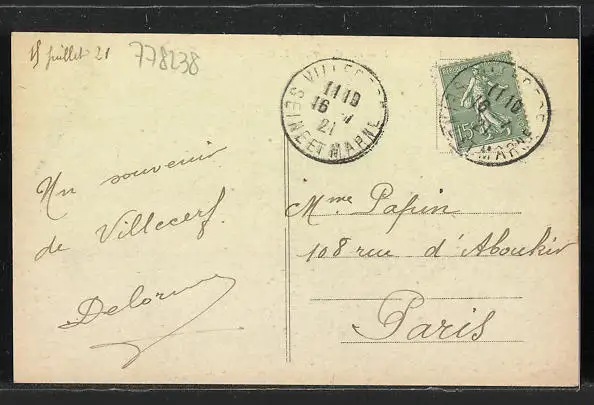 15 juillet 21
778238
VILLECERF
11 10
16
21
SEINE ET MARNE
15
11 10
16
MARNE
Un souvenir
de Villecerf
Delorme
Mme Papin
108 rue d'Aboukir
Paris